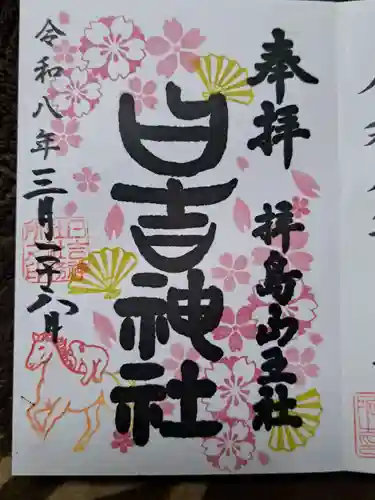 奉拝
拝島山王社
日吉神社
令和八年三月二十八日